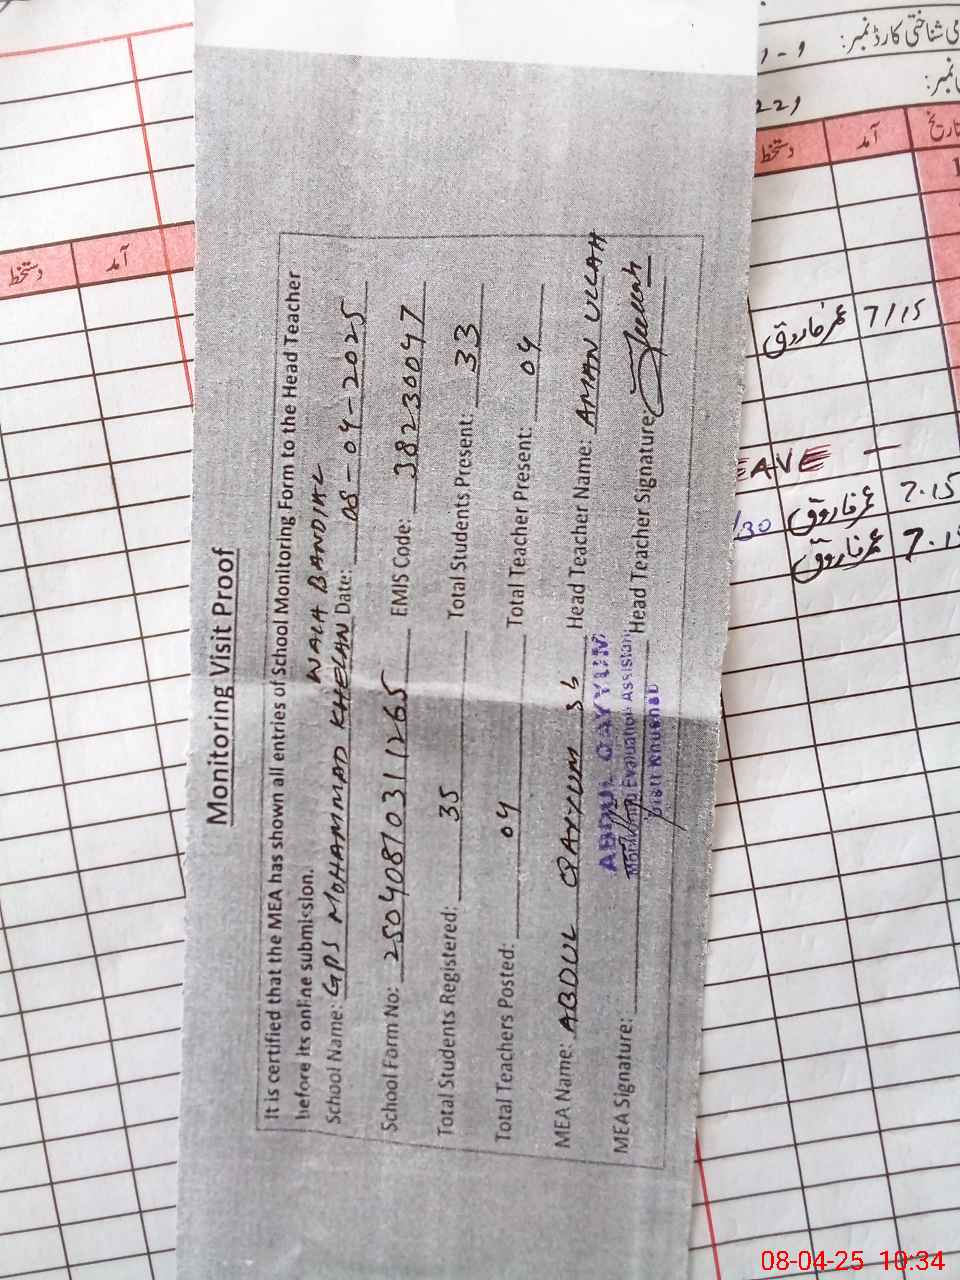 Monitoring Visit Proof
It is certified that the MEA has shown all entries of School Monitoring Form to the Head Teacher
before its online submission.
WALA BANDIAL
School Name: GPS MOHAMMAD KHELAN Date: 08-04-2025
School Form No: 25040810311265 EMIS Code: 38230047
Total Students Registered: 35 Total Students Present: 33
Total Teachers Posted: 04 Total Teacher Present: 04
MEA Name: ABDUL QAYYUM Head Teacher Name: AMAN ULLAH
MEA Signature: Head Teacher Signature:
ABDUL QAYYUM
Monitoring Evaluation Assistant
Distt Khushab
شناختی کارڈ نمبر:
نمبر:
229
دستخط آمد تاریخ
دستخط آمد
عمر فاروق 7/15
EAVE
/30 عمر فاروق 7.15
عمر فاروق
08-04-25 10:34